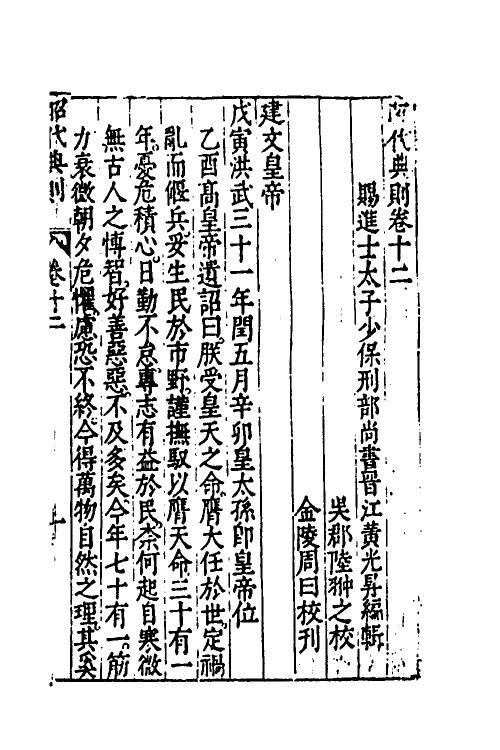 昭代典則卷十二
賜進士太子少保刑部尚書晉江黃光昇編輯
吳郡陸翀之校
金陵周曰校刊
建文皇帝
戊寅洪武三十一年閏五月辛卯皇太孫即皇帝位
乙酉高皇帝遺詔曰朕受皇天之命膺大任於世定禍
亂而偃兵妥生民於市野謹撫馭以膺天命三十有一
年憂危積心日勤不怠專志有益於民奈何起自寒微
無古人之博智好善惡惡不及多矣今年七十有一筋
力衰微朝夕危懼慮恐不終今得萬物自然之理其奚
昭代典則
卷十二
一